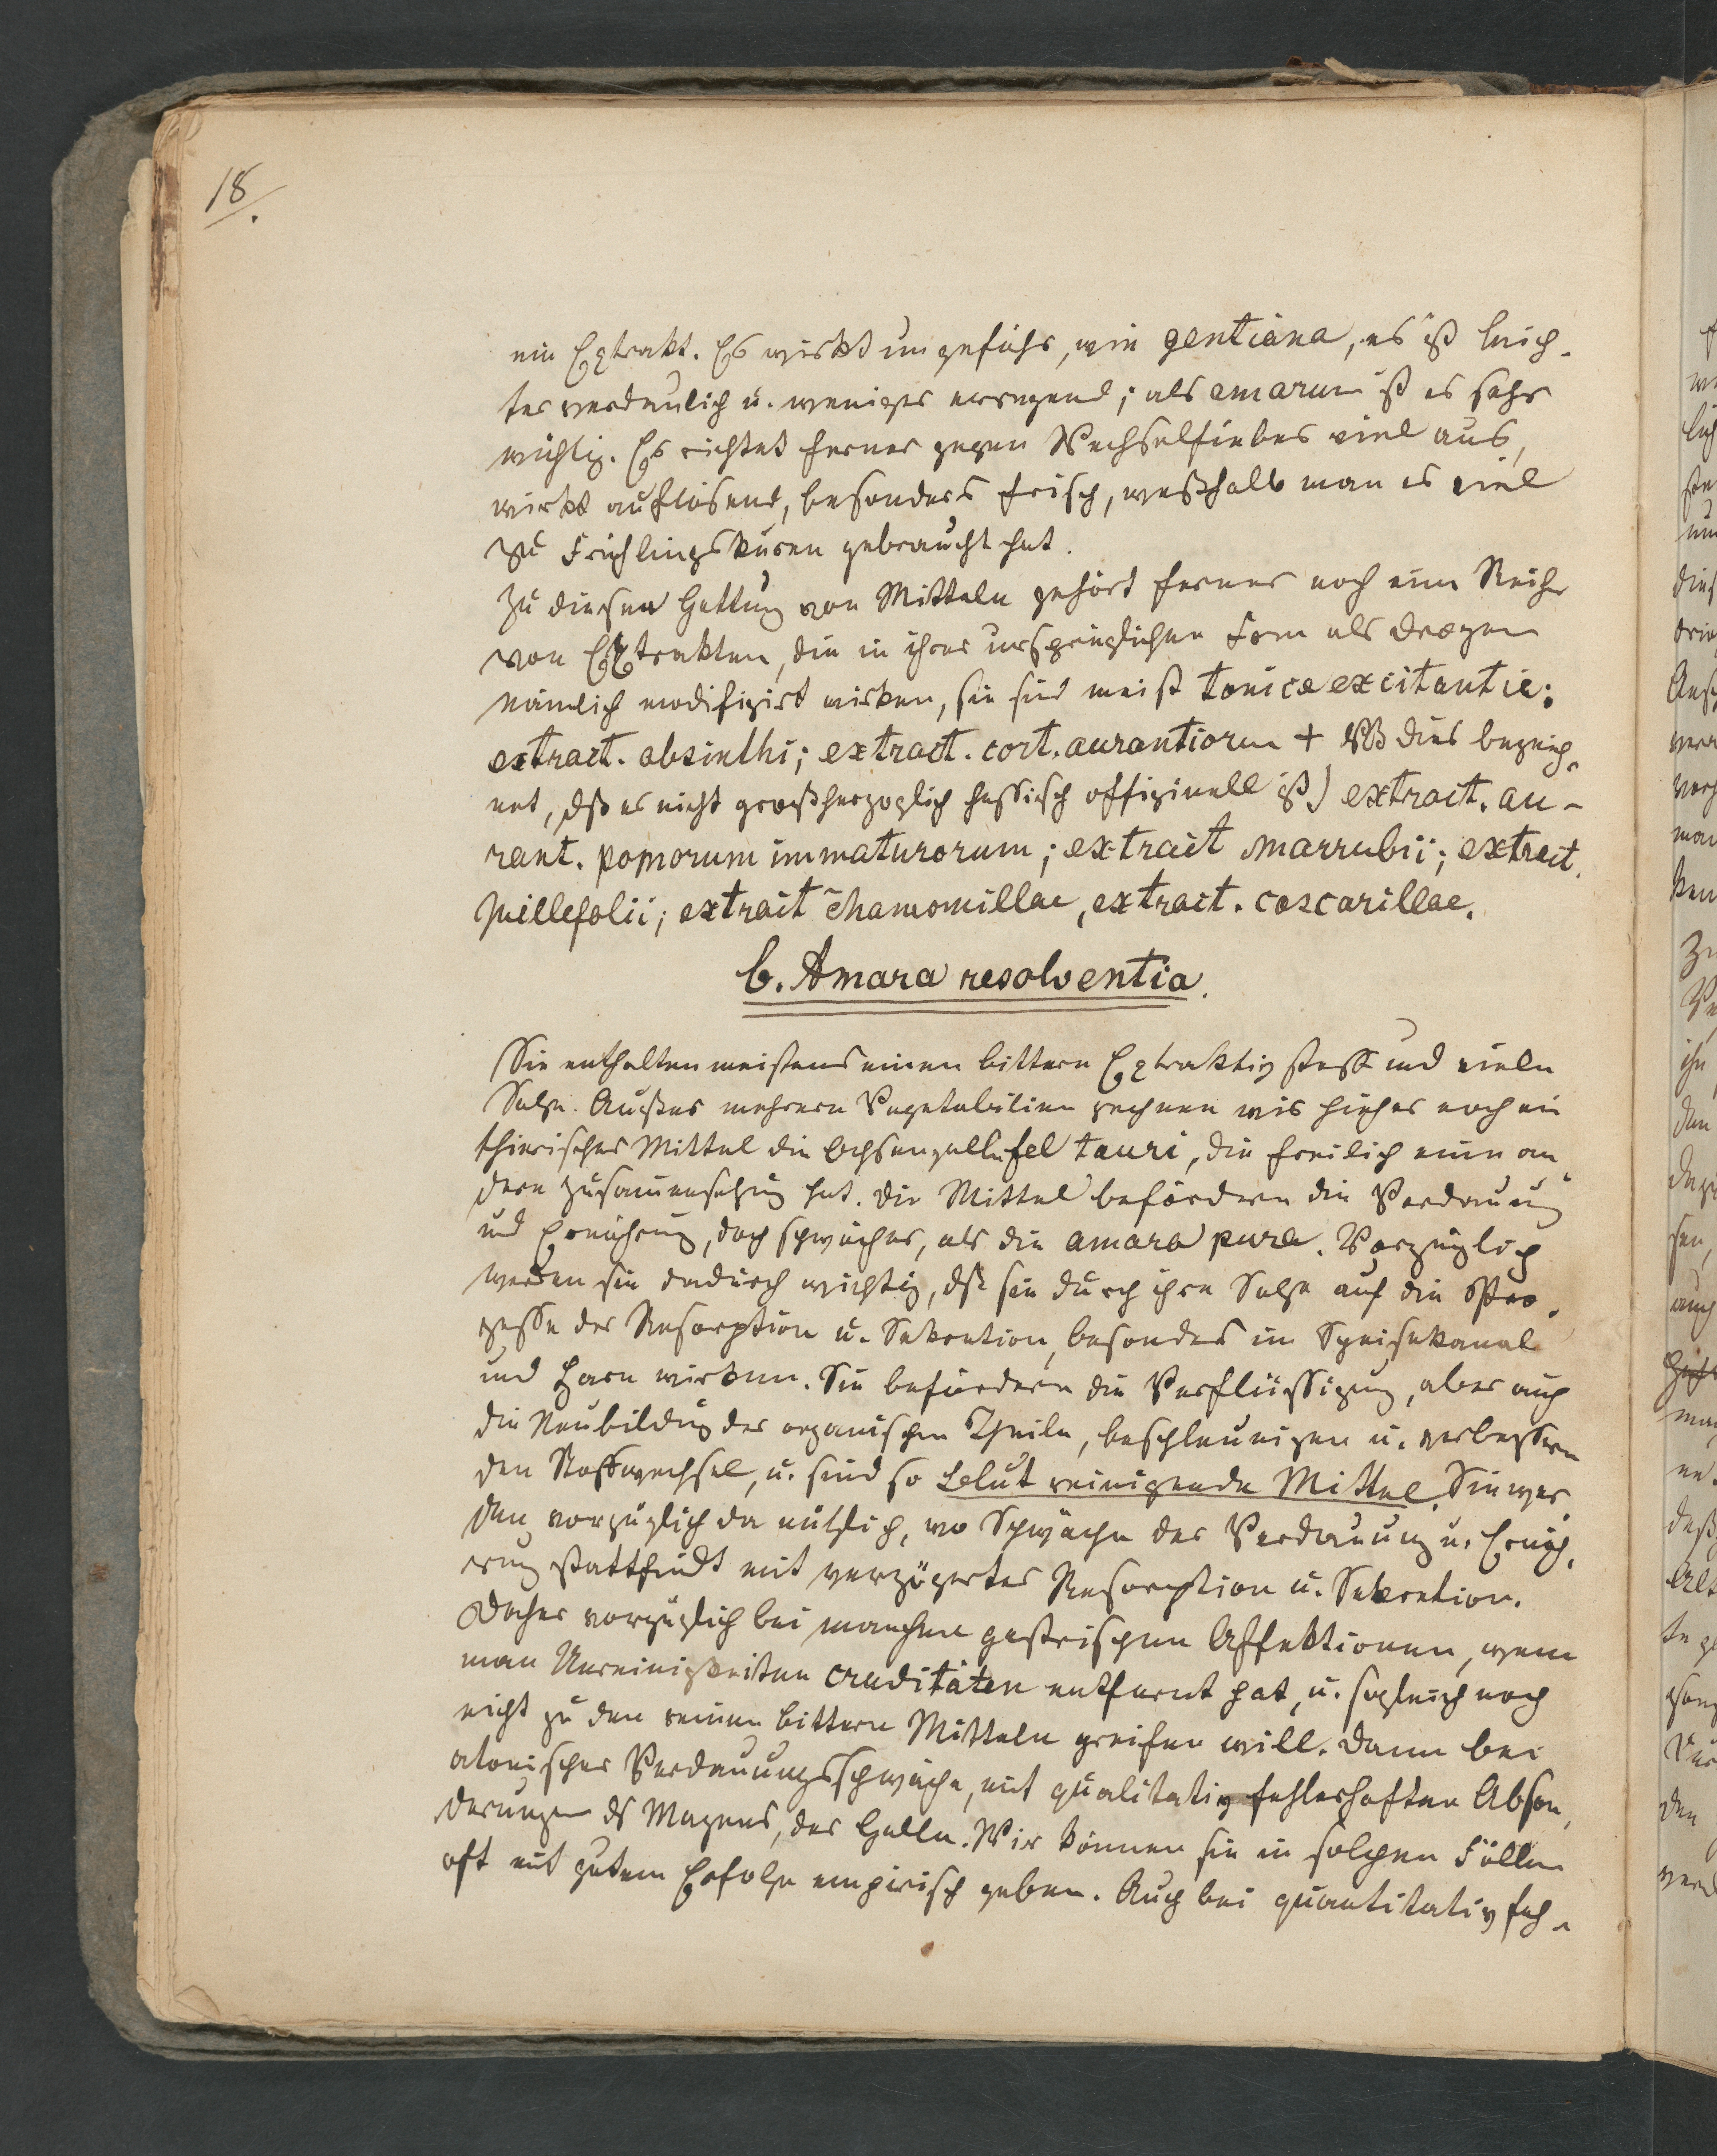 18.
ein Extrakt. Es wirkt ungefähr, wie gentiana, es ist leich-
ter verdaulich u. weniger erregend; als amarum ist es sehr
wichtig. Es richtet ferner gegen Wechselfieber viel aus,
wirkt auflösend, besonders frisch, weßhalb man es viel
zu Frühlingskuren gebraucht hat.
Zu dieser Gattung von Mitteln gehört ferner noch eine Reihe
von Extrakten, die in ihrer ursprünglichen Form als Drogen
nämlich modifizirt wirken, sie sind meist tonica excitantia:
extract. absinthi; extract. cort. aurantiorum + dies bezeich-
net, dß es nicht großherzoglich hessisch offizinell ist) extract. au-
rant. pomorum immaturorum; extract marrubii; extract.
millefolii; extract chamomillae, extract. cascarillae.
b. Amara resolventia.
Sie enthalten meistens einen bittern Extraktivstoff und viele
Salze. Außer mehrern Vegetabilien rechnen wir hieher noch ein
thierisches Mittel die Ochsengalle fel tauri, die freilich eine an-
dere Zusammensetzung hat. Die Mittel befördern die Verdauung
und Ernährung, doch schwächer, als die amara pura. Vorzüglich
werden sie dadurch wichtig, dß sie durch ihre Salze auf die Pro-
zesse der Resorption u. Sekretion, besonders im Speisekanal
und Harn wirken. Sie befördern die Verflüssigung, aber auch
die Neubildung der organischen Theile, beschleunigen u. verbessern
den Stoffwechsel, u. sind so Blut reinigende Mittel. Sie wer-
den vorzüglich da nützlich, wo Schwäche der Verdauung u. Ernäh-
rung stattfindt mit verzögerter Resorption u. Sekretion.
Daher vorzüglich bei manchen gastrischen Affektionen, wenn
man Unreinigkeiten Cruditäten entfernt hat, u. sogleich noch
nicht zu den reinen bittern Mitteln greifen will. Dann bei
atonischer Verdauungsschwäche, mit qualitativ fehlerhaften Abson-
derungen ds Magens, der Galle. Wir können sie in solchen Fällen
oft mit gutem Erfolge empirisch geben. Auch bei quantitativ feh-